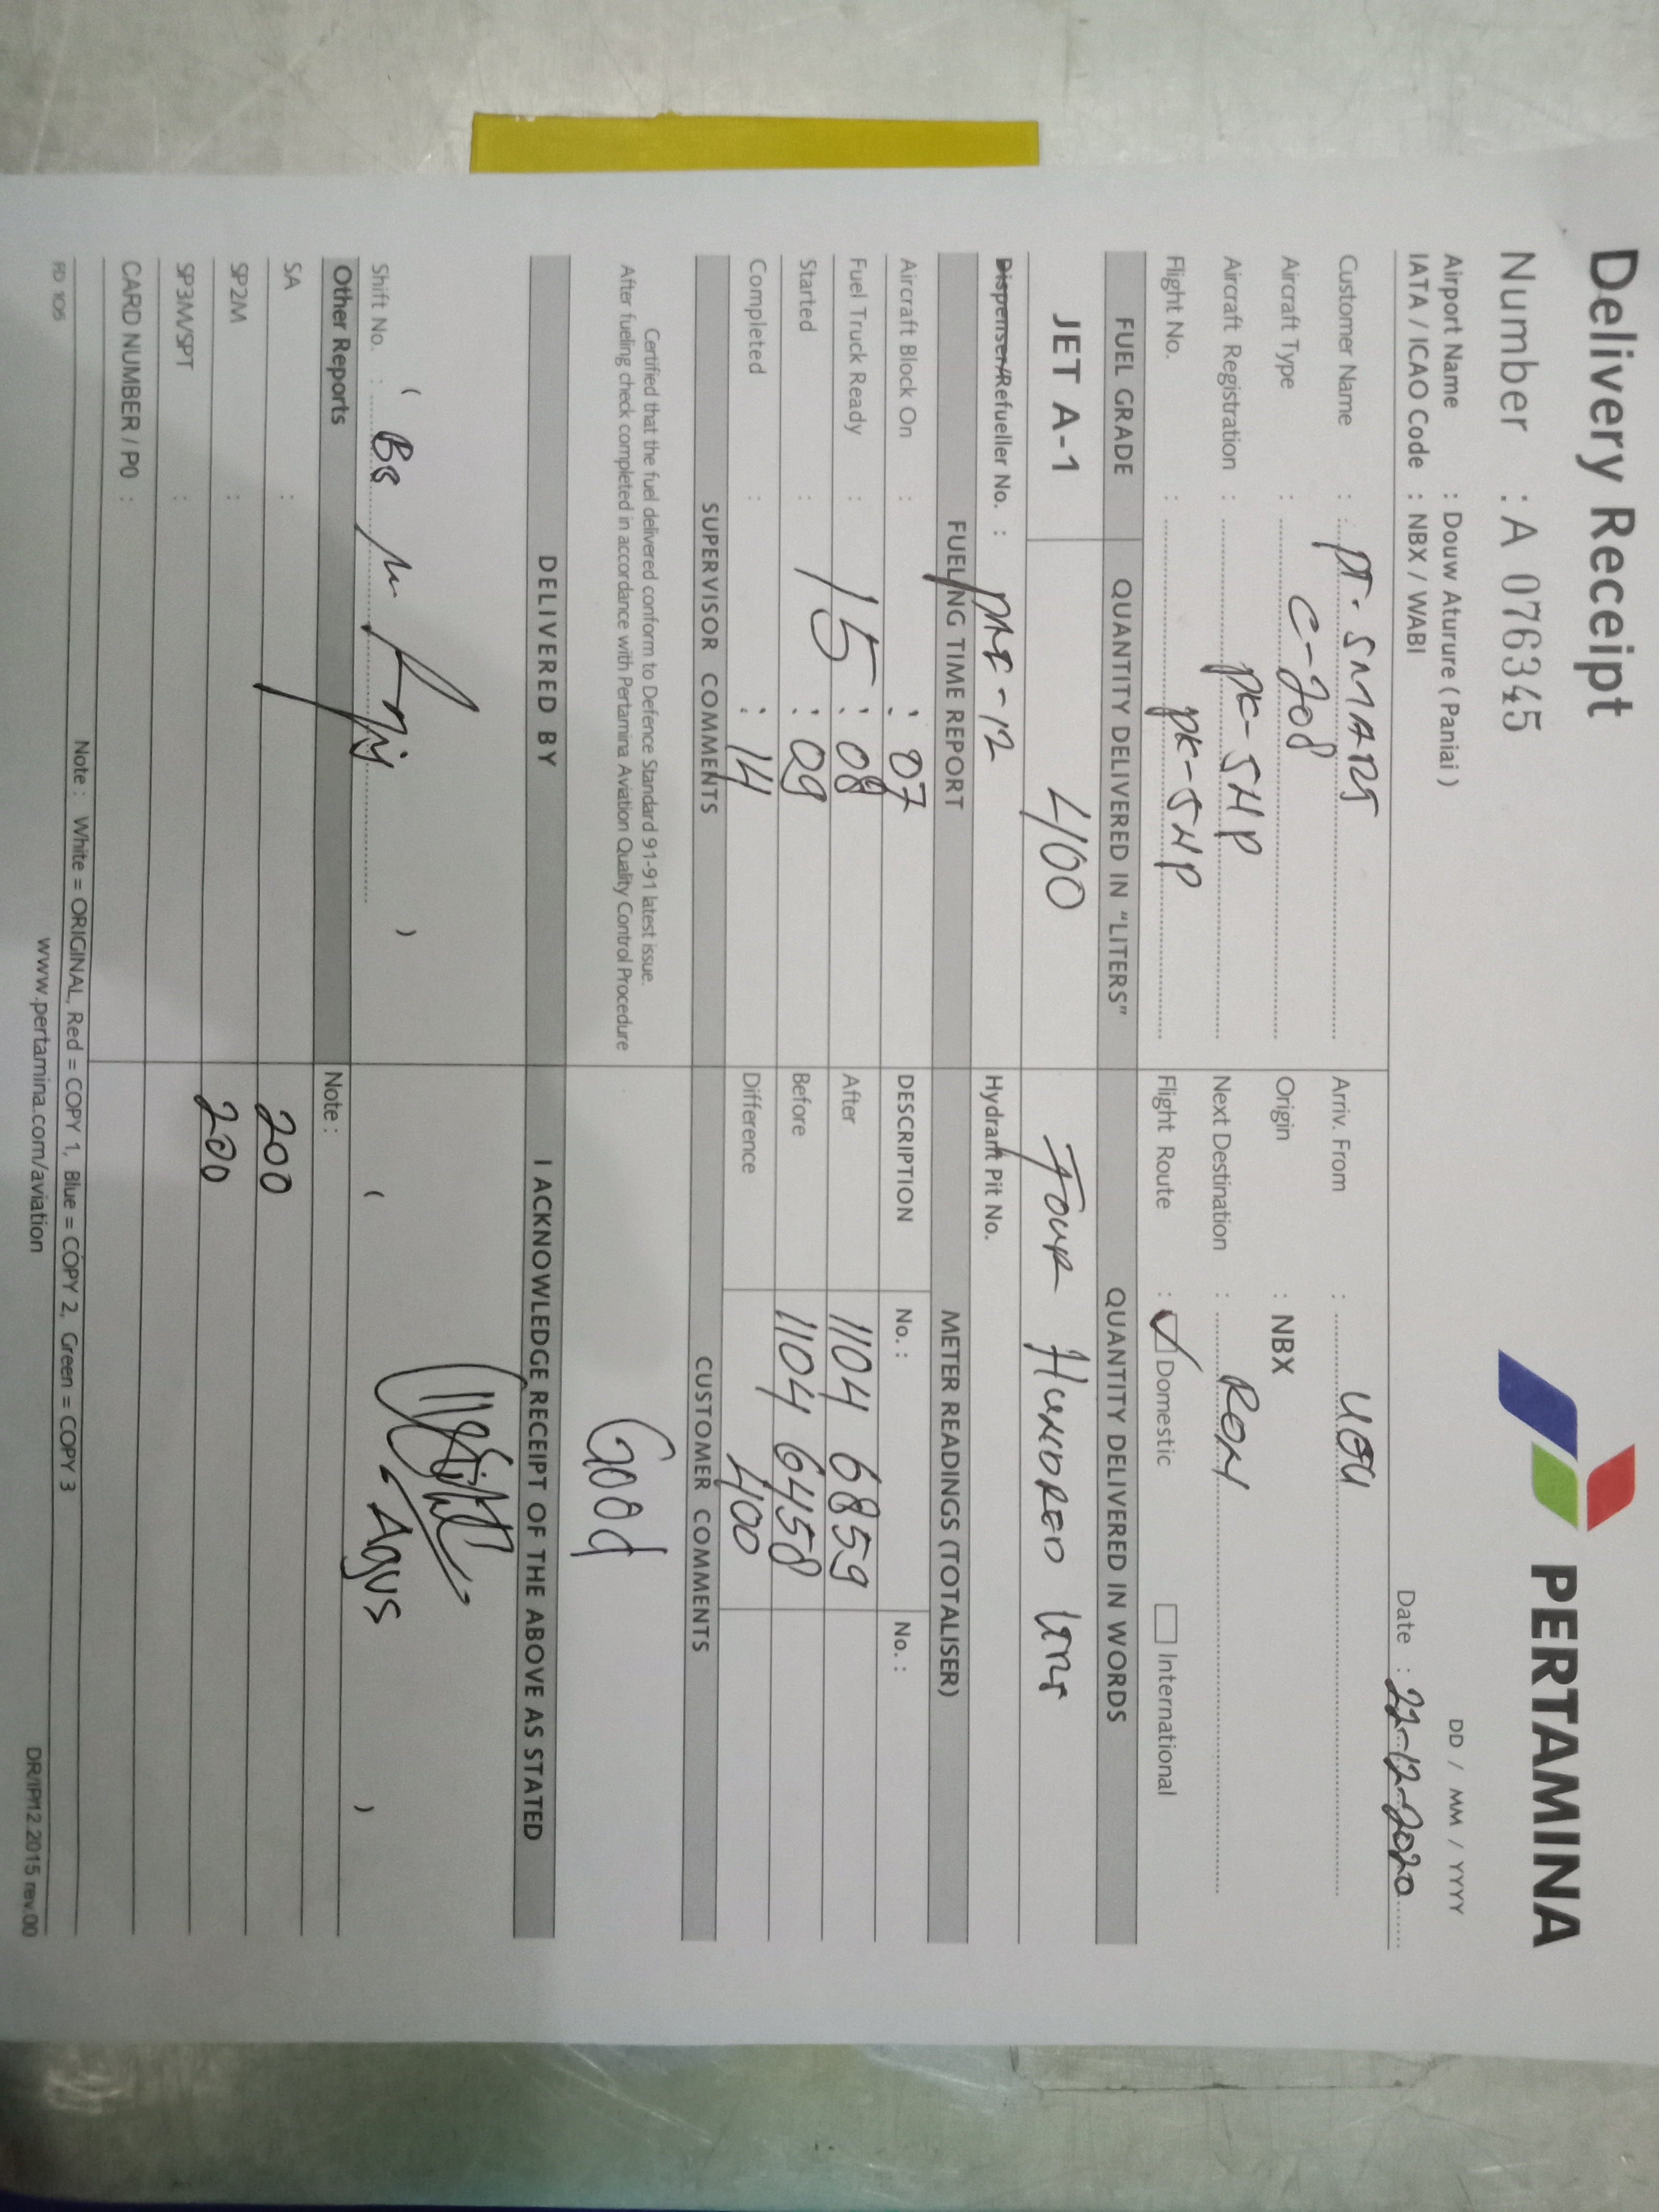 Delivery Receipt
PERTAMINA
Number : A 076345
DD / MM / YYYY
Airport Name : Douw Aturure ( Paniai )
IATA / ICAO Code : NBX / WABI
Date : 22-12-2020
Customer Name : PT. SMART
Arriv. From :
Aircraft Type : C-208
Origin : NBX
Aircraft Registration : PK-SNP
Next Destination : RON
Flight No. : PK-SNP
Flight Route : Domestic International
FUEL GRADE QUANTITY DELIVERED IN "LITERS" QUANTITY DELIVERED IN WORDS
JET A-1 400 Four HUNDRED
Dispenser/Refueller No. : -12 Hydrant Pit No.
FUELING TIME REPORT METER READINGS (TOTALISER)
Aircraft Block On : : 07 DESCRIPTION No. : No. :
Fuel Truck Ready : 15 : 08 After 1104 6859
Started : : 09 Before 1104 6458
Completed : : 14 Difference 400
SUPERVISOR COMMENTS CUSTOMER COMMENTS
Certified that the fuel delivered conform to Defence Standard 91-91 latest issue.
After fueling check completed in accordance with Pertamina Aviation Quality Control Procedure
Good
DELIVERED BY I ACKNOWLEDGE RECEIPT OF THE ABOVE AS STATED
Agus
Shift No. :
Other Reports Note :
SA : 200
SP2M : 200
SP3M/SPT :
CARD NUMBER / PO :
Note : White = ORIGINAL, Red = COPY 1, Blue = COPY 2, Green = COPY 3
FID 105 www.pertamina.com/aviation DR/IP/12 2015 rev.00